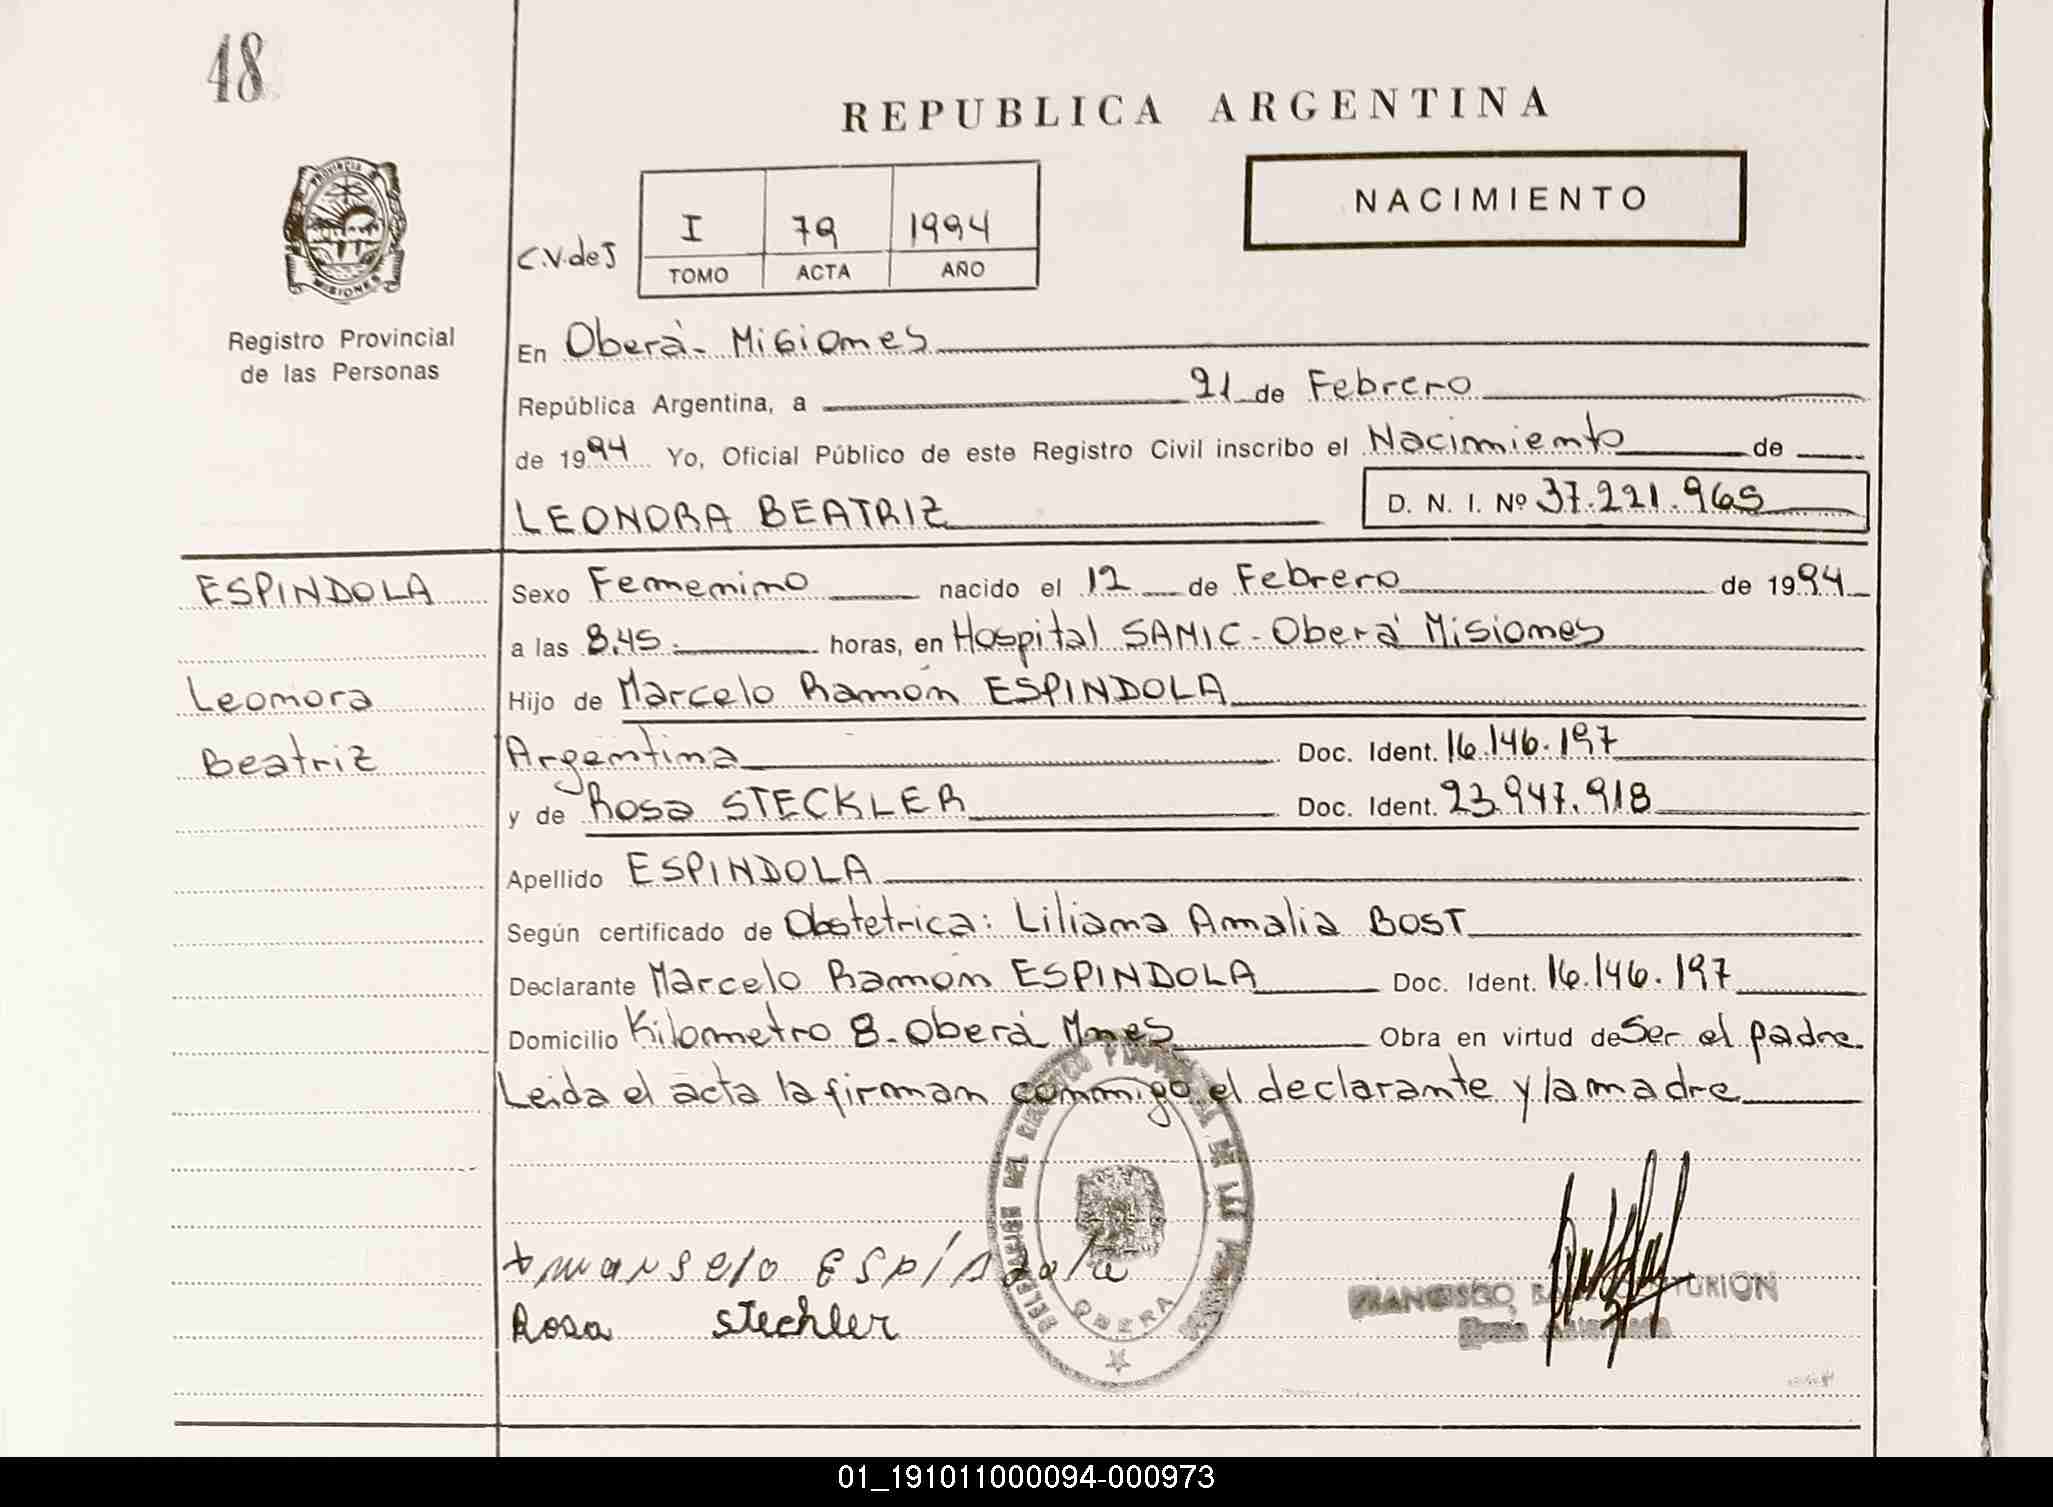 48
REPUBLICA ARGENTINA
PROVINCIA DE
MISIONES
Registro Provincial
de las Personas
C.V.deJ
I 79 1994
TOMO ACTA AÑO
NACIMIENTO
En Oberá - Misiones
República Argentina, a 21 de Febrero
de 1994 Yo, Oficial Público de este Registro Civil inscribo el Nacimiento de
LEONORA BEATRIZ D. N. I. Nº 37.221.965
ESPINDOLA
Leonora
Beatriz
Sexo Femenino nacido el 12 de Febrero de 1994
a las 8.45 horas, en Hospital SAMIC - Oberá Misiones
Hijo de Marcelo Ramón ESPINDOLA
Argentina Doc. Ident. 16.146.197
y de Rosa STECKLER Doc. Ident. 23.947.918
Apellido ESPINDOLA
Según certificado de Obstetrica: Liliana Amalia BOST
Declarante Marcelo Ramón ESPINDOLA Doc. Ident. 16.146.197
Domicilio Kilometro 8 - Oberá Mnes Obra en virtud de Ser el padre
Leida el acta la firman conmigo el declarante y la madre
DE LAS
OBERA
Espíndola
Rosa Steckler
FRANCISCO
01_191011000094-000973